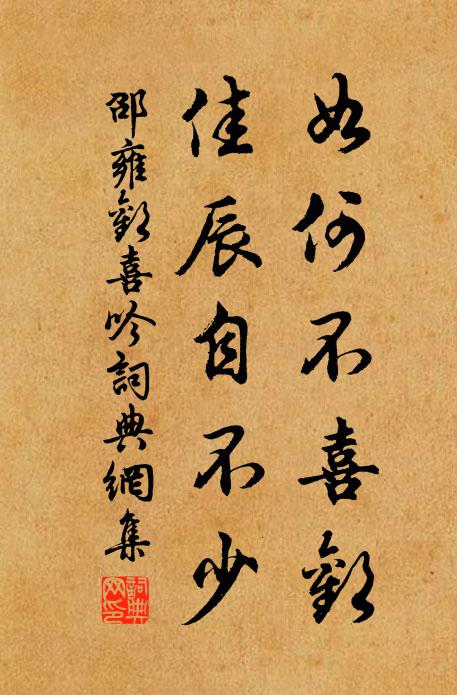 如何不喜歡
佳辰自不少
邵雍歡喜吟詞典網集
詞典網印